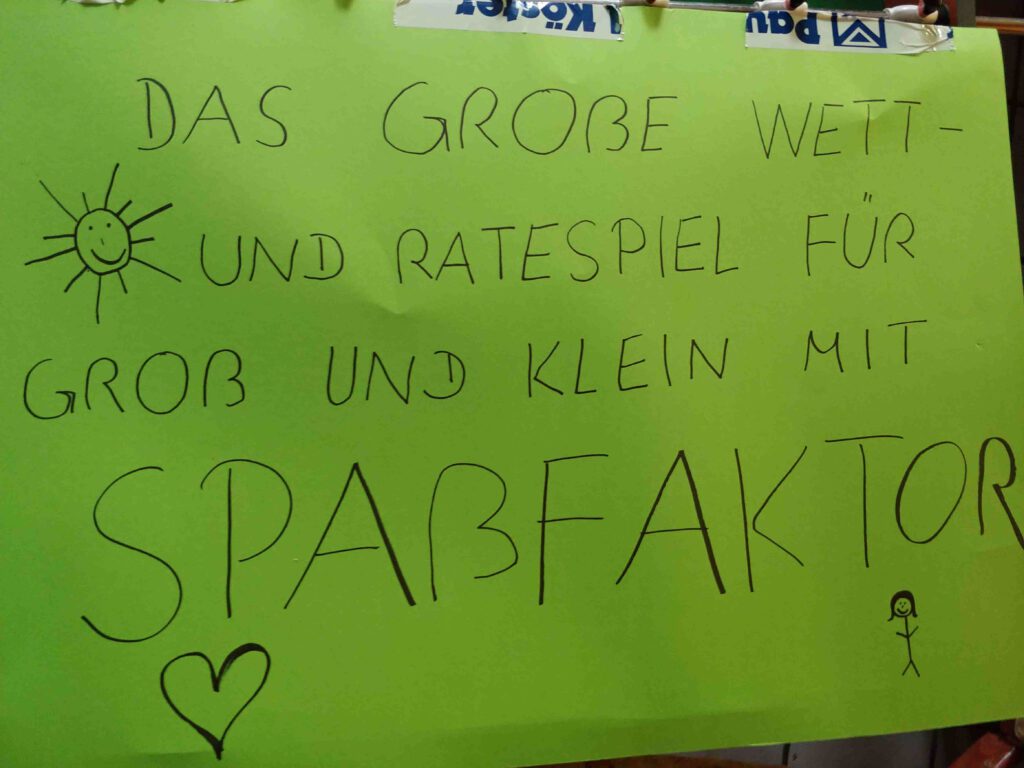 Köster
Pau
DAS GROßE WETT-
UND RATESPIEL FÜR
GROß UND KLEIN MIT
SPAßFAKTOR